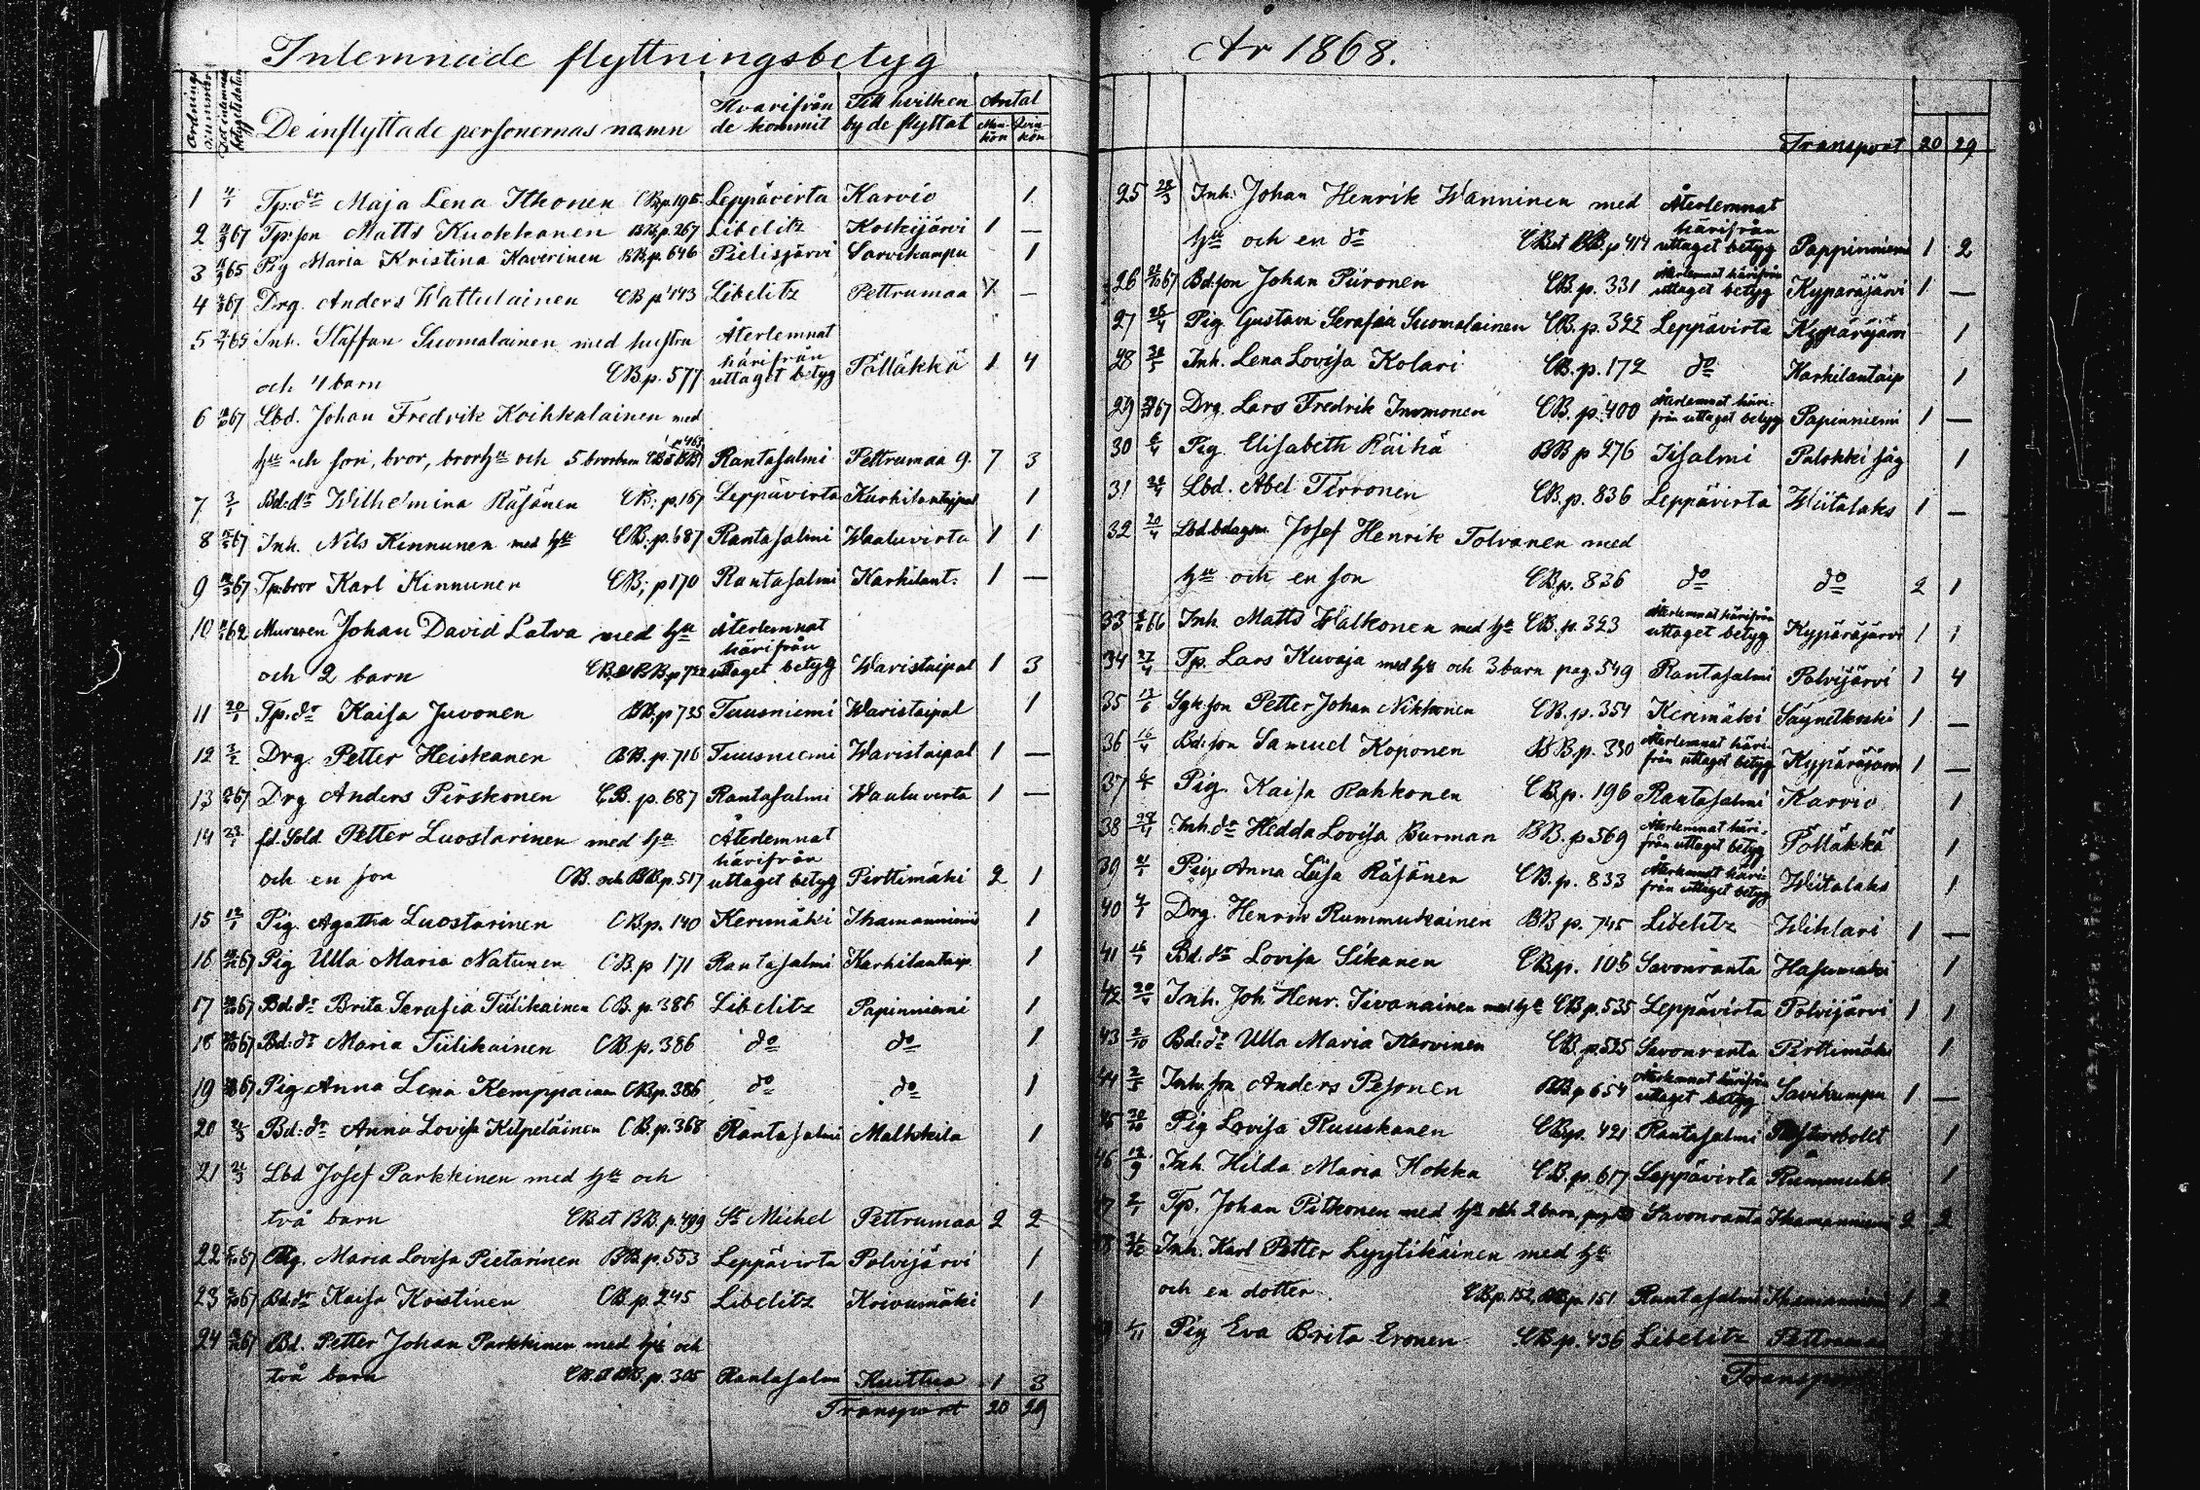 Inlemnade flyttningsbetyg
Ordnings nummer
De inflyttade personernas namn
Hvarifrån de kommit
Till hvilken by de flyttat
Antal
Man-kön Qvin-kön
1 Tp:dr Maja Lena Itkonen CB.p.195 Leppävirta Karvio 1
2 67 Tp:son Matts Kuokkanen BB.p.267 Libelitz Koskijärvi 1 —
3 65 Pig Maria Kristina Kaverinen BB.p.646 Pielisjärvi Savikumpu 1
4 67 Drg. Anders Wattulainen CB p 143 Libelitz Pettrumaa 1 —
5 65 Inh. Staffan Suomalainen med hustru Återlemnat härifrån
och 4 barn CB.p.577 uttaget betyg Pölläkkä 1 4
6 67 Lbd. Johan Fredrik Koihkalainen med
hu och son, bror, brorhu och 5 brorbarn Rantasalmi Pettrumaa g. 7 3
7 Bd:dr Wilhelmina Räsänen CB.p.167 Leppävirta Karhilantaipal 1
8 67 Inh. Nils Kinnunen med hu CB.p.687 Rantasalmi Waaluvirta 1 1
9 67 Tp:bror Karl Kinnunen CB; p170 Rantasalmi Karhilant: 1 —
10 62 Muraren Johan David Latva med hu Återlemnat härifrån
och 2 barn CB et BB.p 722 uttaget betyg Waristaipal 1 3
11 20/1 Tp:dr Kaisa Juvonen BB.p 735 Tuusniemi Waristaipal 1
12 2/2 Drg. Petter Heiskanen BB.p.716 Tuusniemi Waristaipal 1 —
13 67 Drg Anders Pirskonen CB.p.687 Rantasalmi Waaluvirta 1 —
14 fd.Sold Petter Luostarinen med hu Återlemnat härifrån
och en son CB. och BB.p.517 uttaget betyg Pirttimäki 2 1
15 Pig. Agatha Luostarinen CB.p.140 Kerimäki Ihamanniemi 1
16 67 Pig Ulla Maria Natunen CB.p 171 Rantasalmi Karhilantaip. 1
17 67 Bd:dr Brita Serafia Tiilikainen CB.p.386 Libelitz Papinniemi 1
18 67 Bd:dr Maria Tiilikainen CB.p.386 do do 1
19 67 Pig Anna Lena Kemppainen CB.p.386 do do 1
20 Bd:dr Anna Lovisa Kilpeläinen CB.p.368 Rantasalmi Malkkila 1
21 Lbd Josef Parkkinen med hu och
två barn CB et BB.p.499 St Michel Pettrumaa 2 2
22 67 Pig. Maria Lovisa Pietarinen BB.p.553 Leppävirta Polvijärvi 1
23 67 Bd:dr Kaisa Koistinen CB.p.245 Libelitz Koivumäki 1
24 67 Bd. Petter Johan Parkkinen med hu och
två barn CB et BB.p.305 Rantasalmi Kuittua 1 3
Transport 20 29
År 1868.
Transport 20 29
25 Inh. Johan Henrik Wänninen med Återlemnat härifrån
hu och en dr CB et BB.p 414 uttaget betyg Pappinniemi 1 2
26 67 Bd.son Johan Piironen CB.p.331 Återlemnat härifrån uttaget betyg Kypäräjärvi 1 —
27 Pig. Gustava Serafia Suomalainen CB.p.322 Leppävirta Kypäräjärvi 1
28 Inh. Lena Lovisa Kolari CB.p.172 do Karhilantaip 1
29 67 Drg. Lars Fredrik Immonen CB.p.400 Återlemnat härifrån uttaget betyg Papinniemi 1 —
30 Pig. Elisabeth Räihä BB p 276 Iisalmi Palokki såg 1
31 Lbd. Abel Tirronen CB.p.836 Leppävirta Wiitalaks 1 —
32 20/4 Josef Henrik Tolvanen med
hu och en son CB.p.836 do do 2 1
33 66 Inh. Matts Walkonen med hu CB.p.323 Återlemnat härifrån uttaget betyg Kypäräjärvi 1 1
34 27/4 Tp. Lars Kuvaja med hu och 3 barn pag.549 Rantasalmi Polvijärvi 1 4
35 Petter Johan Nikkonen CB.p.354 Kerimäki Säynetkoski 1 —
36 Bd:son Samuel Koponen BB.p.330 Återlemnat härifrån uttaget betyg Kypäräjärvi 1 —
37 Pig. Kaisa Rahkonen CB.p.196 Rantasalmi Karvio 1
38 Inh.dr Hedda Lovisa Burman BB.p 569 Återlemnat härifrån uttaget betyg Pölläkkä 1
39 Pig. Anna Liisa Räsänen CB.p.833 Återlemnat härifrån uttaget betyg Wiitalaks 1
40 Drg. Henrik Rummukainen BB p.745 Libelitz Wihtari 1 —
41 Bd.dr Lovisa Sikanen CB.p.105 Savonranta Hasumäki 1
42 Inh. Joh. Henr. Iivanainen med hu CB.p.535 Leppävirta Polvijärvi 1 1
43 Bd:dr Ulla Maria Karvinen CB.p 525 Savonranta Pirttimäki 1
44 Inh.son Anders Pesonen BB.p 654 Återlemnat härifrån uttaget betyg Savikumpu 1 —
45 Pig Lovisa Ruuskanen CB.p.421 Rantasalmi 1
46 12/9 Inh. Hilda Maria Hokka CB.p.617 Leppävirta 1
7 Tp. Johan Pitkonen med hu och 2 barn Savonranta Ihamanniemi 2 2
8 Inh. Karl Petter Lyytikäinen med hu
och en dotter CB.p.152, BB.p.151 Rantasalmi Ihamanniemi 1 2
Pig Eva Brita Eronen CB.p.436 Libelitz Pettrumaa
Transport